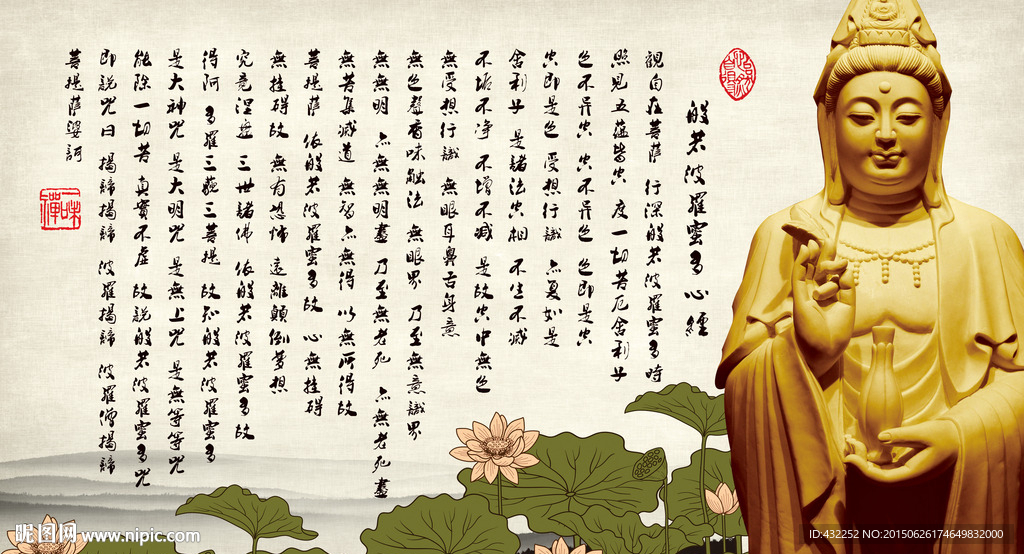 般若波羅蜜多心經
觀自在菩薩 行深般若波羅蜜多時
照見五蘊皆空 度一切苦厄舍利子
色不异空 空不异色 色即是空
空即是色 受想行識 亦复如是
舍利子 是諸法空相 不生不减
不垢不净 不增不减 是故空中無色
無受想行識 無眼耳鼻舌身意
無色聲香味触法 無眼界 乃至無意識界
無無明 亦無無明盡 乃至無老死 亦無老死盡
無苦集滅道 無智亦無得 以無所得故
菩提薩 依般若波羅蜜多故 心無挂碍
無挂碍故 無有恐怖 遠離顛倒夢想
究竟涅盘 三世諸佛 依般若波羅蜜多故
得阿 多羅三藐三菩提 故知般若波羅蜜多
是大神咒 是大明咒 是無上咒 是無等等咒
能除一切苦 真實不虛 故説般若波羅蜜多咒
即説咒曰 揭諦揭諦 波羅揭諦 波羅僧揭諦
菩提薩婆訶
昵图网 www.nipic.com
ID:432252 NO:20150626174649832000